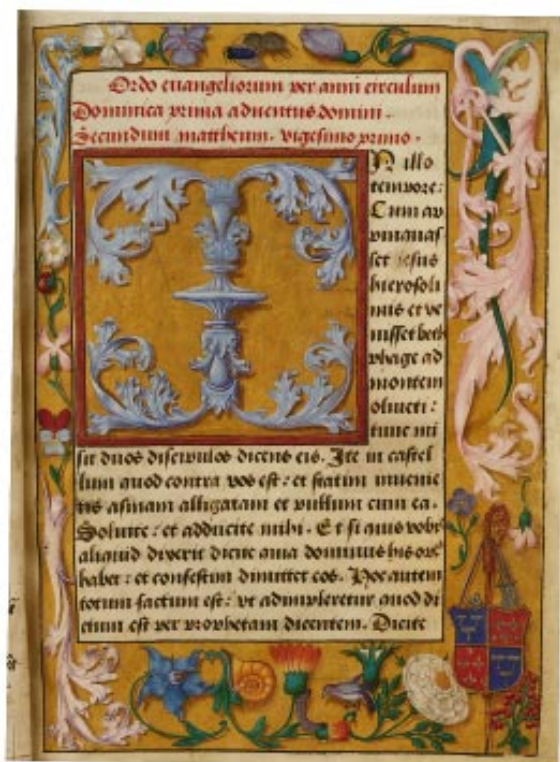 Ordo euangeliorum per anni circulum
Dominica prima aduentus domini.
Secundum mattheum. vigesimo primo.
IN illo
tempore:
Cum ap
pinquas
set iesus
hierosoli
mis et ve
nisset beth
phage ad
montem
oliueti:
tunc mi
sit duos discipulos dicens eis. Ite in castel
lum quod contra vos est: et statim inuenie
tis asinam alligatam et pullum cum ea.
Soluite: et adducite mihi. Et si quis vobis
aliquid dixerit dicite quia dominus his opus
habet: et confestim dimittet eos. Hoc autem
totum factum est: vt adimpleretur quod di
ctum est per prophetam dicentem. Dicite